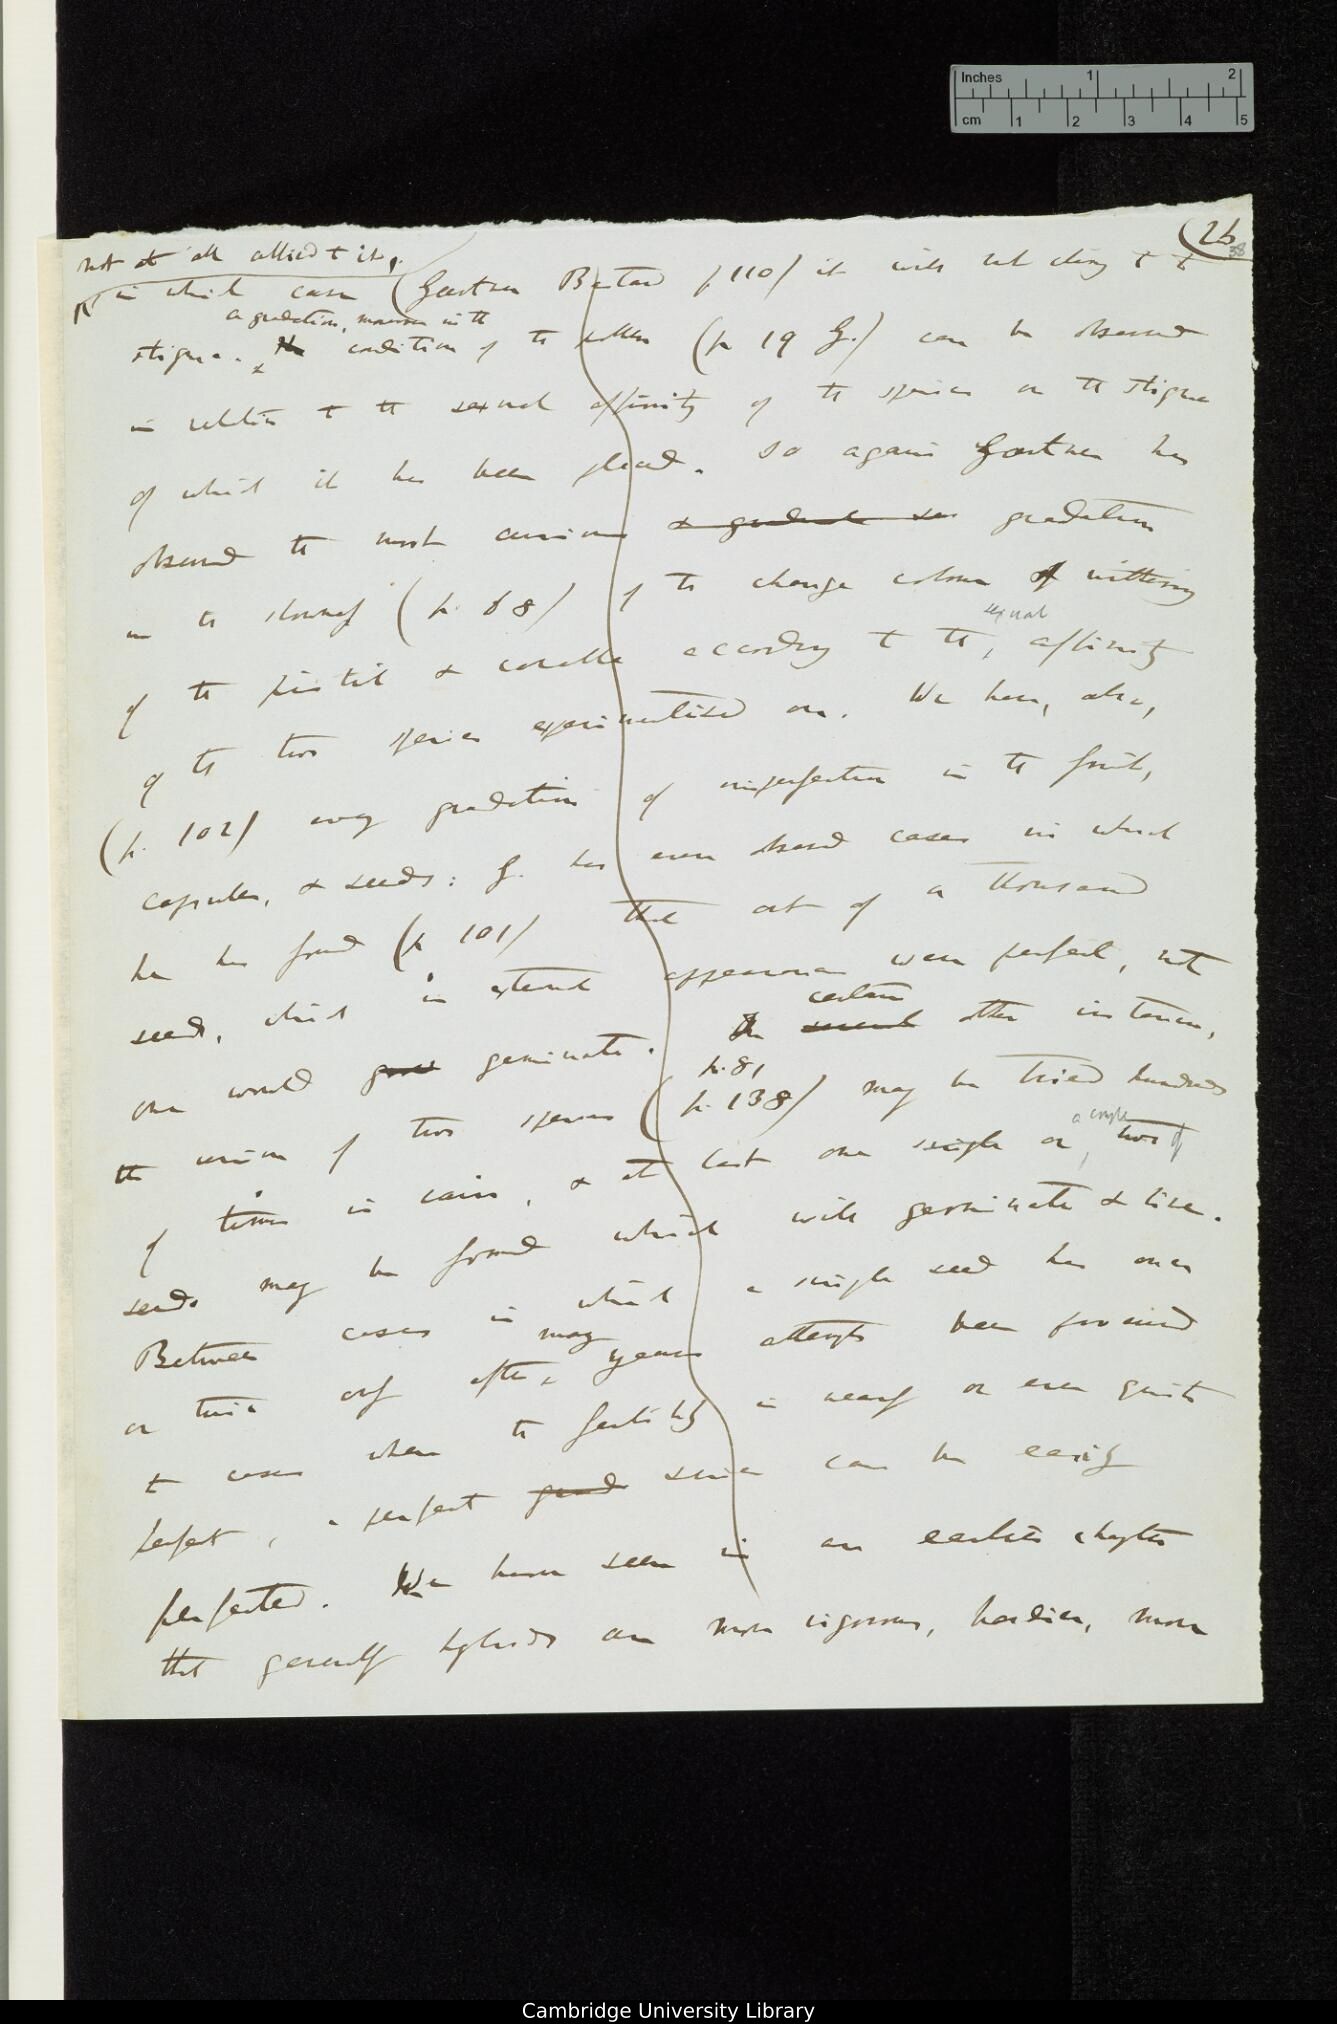 Inches 1 2
cm 1 2 3 4 5
26
38
not at all allied to it,
in which case (Gærtner Bastard p 110) it will not cling to the
a gradation, moreover in the
stigma. condition of the pollen (p 19 G.) can be observed
in relation to the sexual affinity of the species on the stigma
of which it has been placed. So again Gærtner has
observed the most curious & gradual gradation
in the slowness (p. 68) of the change colour & withering
sexual
of the pistil & corolla according to the affinity
of the two species experimentised on. We have, also,
(p. 102) every gradation of imperfection in the fruit,
capsules, & seeds: G. has even observed cases in which
he has found (p 101) that out of a thousand
seeds, which in external appearance were perfect, not
certain
one would grow germinate. In several other instances,
p. 81
the union of two species (p. 138) may be tried hundreds
a couple
of times in vain, & at last one single or two of
seeds may be found which will germinate & live.
Between cases in which a single seed has once
many
or twice only after years attempts been procured
to cases where the fertility is nearly or even quite
perfect, a perfect series can be easily
perfected. We have seen in an earlier chapter
that generally hybrids are more vigorous, hardier, more
Cambridge University Library